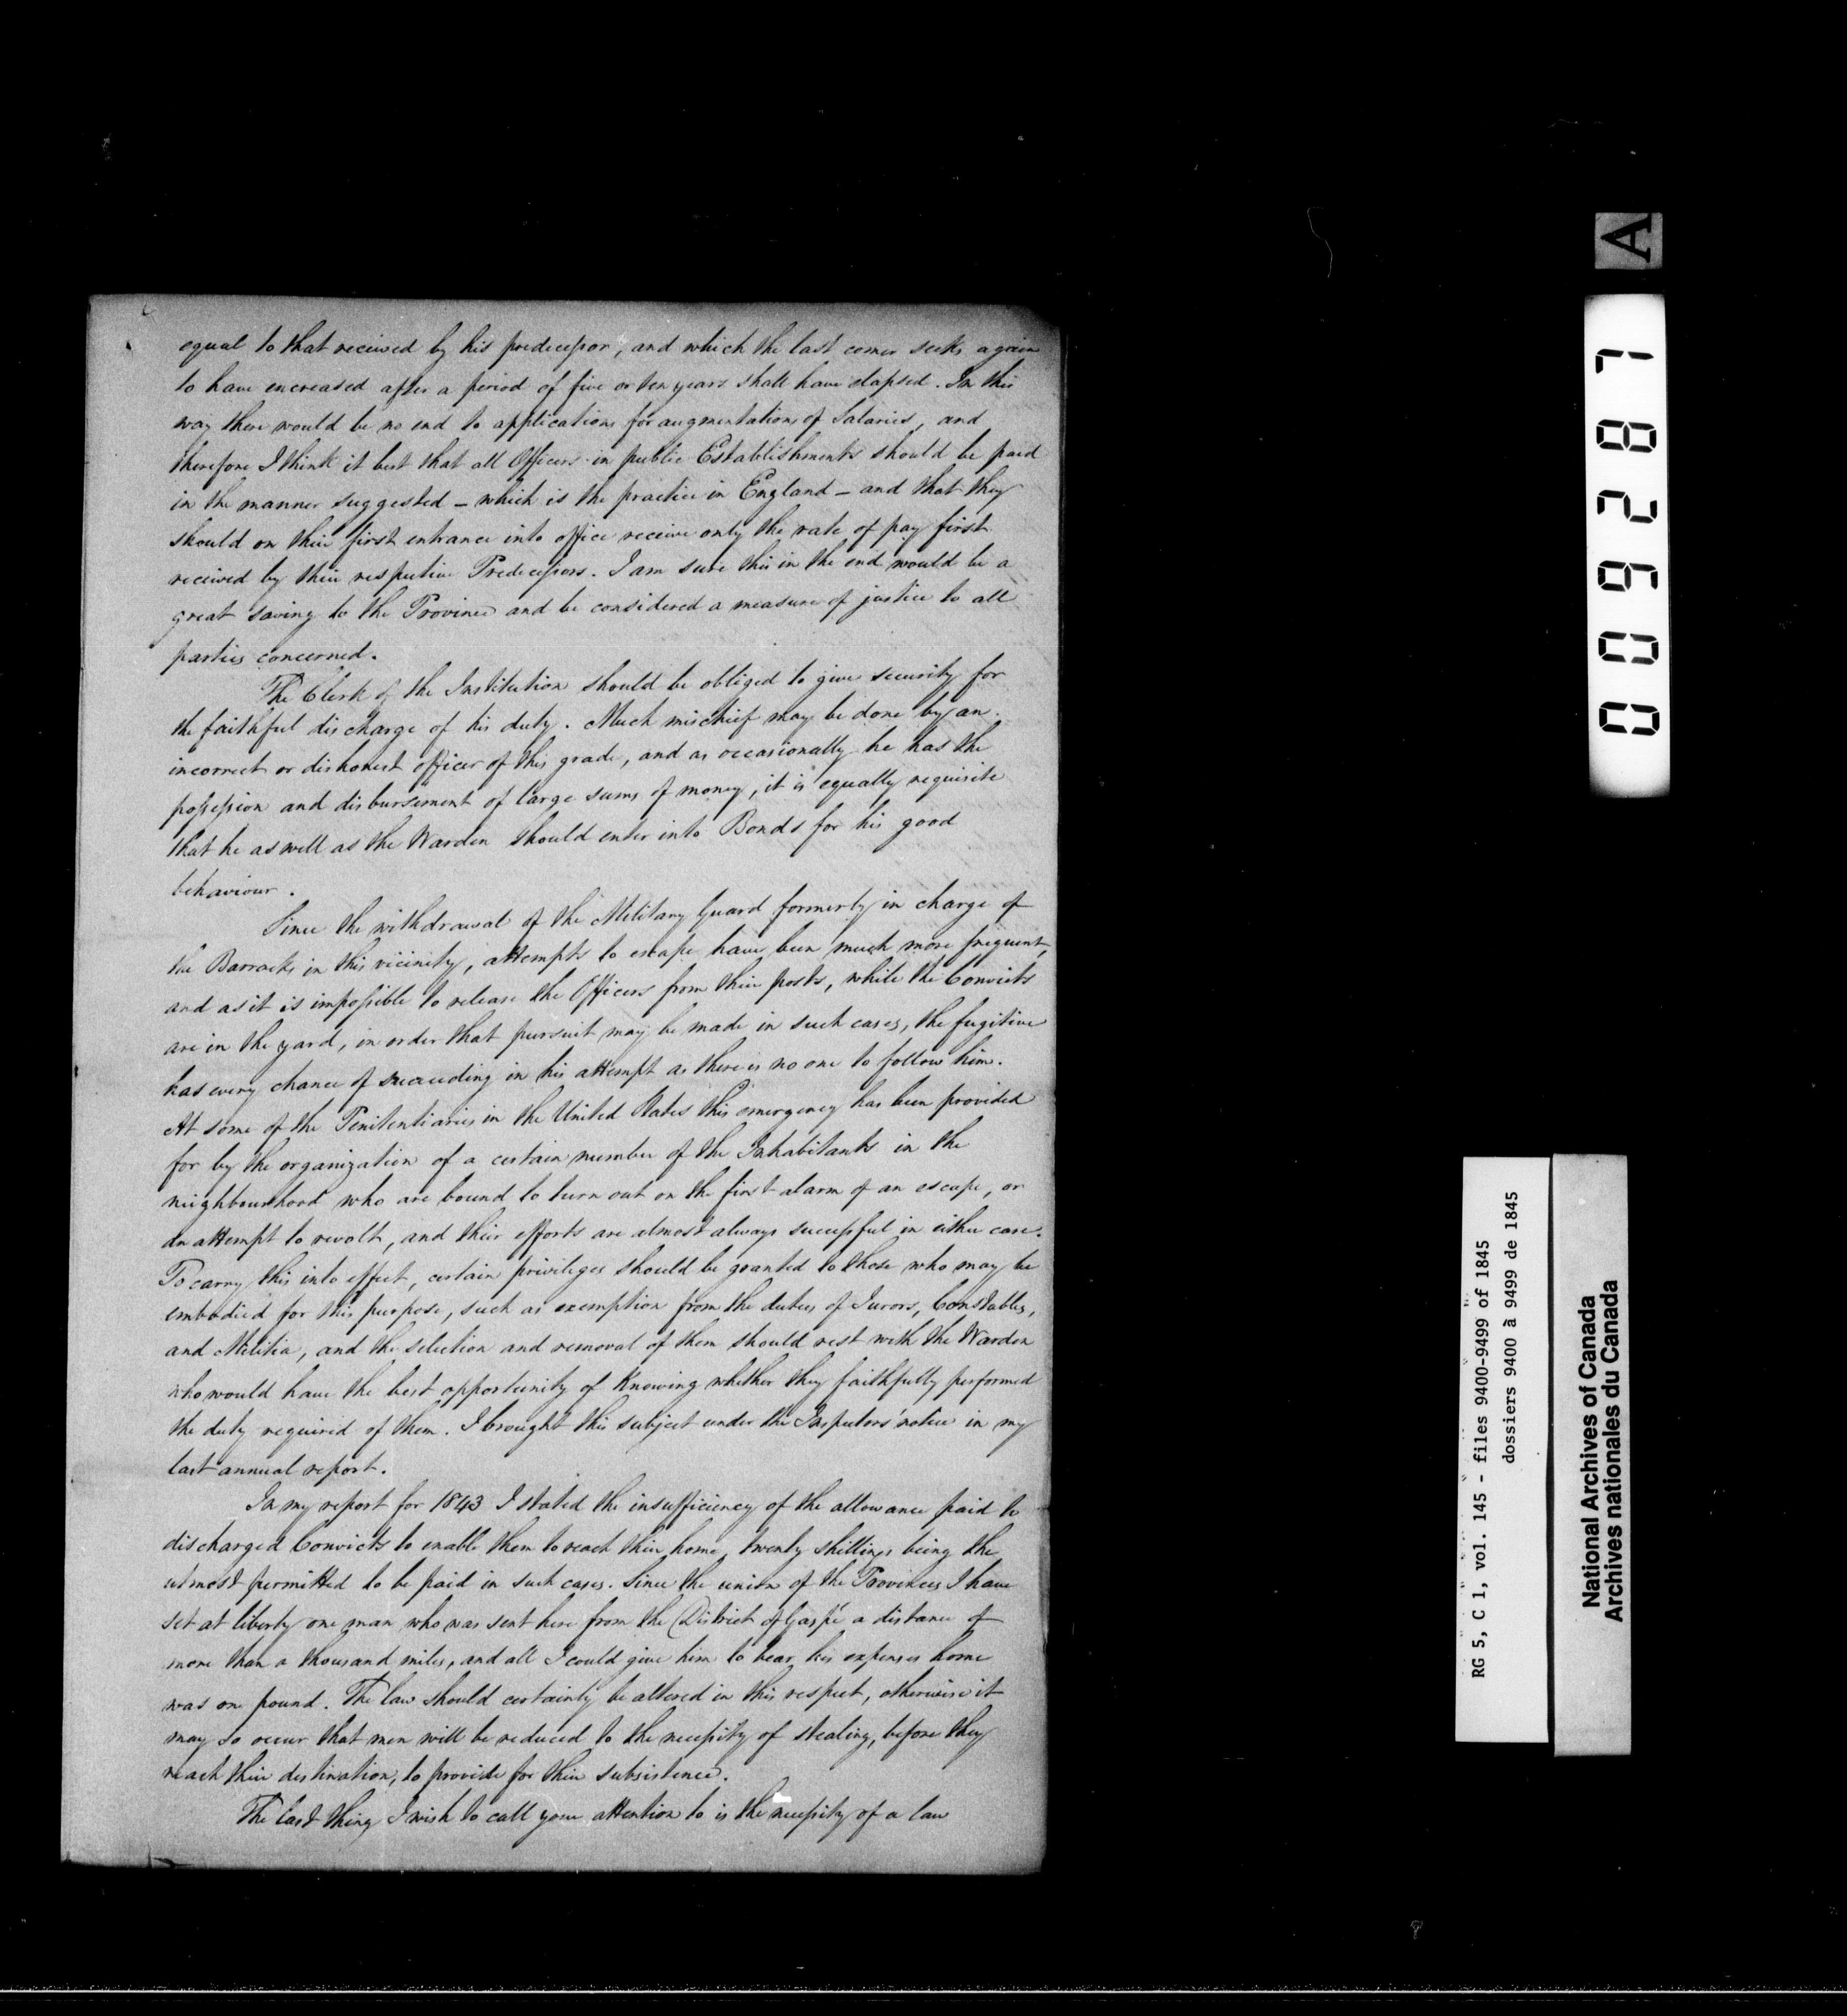 equal to that received by his predecessor, and which the last comer seeks again
to have encreased after a period of five or ten years shall have elapsed. In this
way there would be no end to applications for augmentations of Salaries, and
therefore I think it best that all Officers in public Establishments should be paid
in the manner suggested – which is the practice in England – and that they
should on their first entrance into office receive only the rate of pay first
received by their respective Predecessors. I am sure this in the end would be a
great saving to the Province and be considered a measure of justice to all
parties concerned.
The Clerk of the Institution should be obliged to give security for
the faithful discharge of his duty. Much mischief may be done by an
incorrect or dishonest officer of this grade, and as occasionally he has the
possession and disbursement of large sums of money, it is equally requisite
that he as well as the Warden should enter into Bonds for his good
behaviour.
Since the withdrawal of the Military Guard formerly in charge of
the Barracks in this vicinity, attempts to escape have been much more frequent,
and as it is impossible to release the Officers from their posts, while the Convicts
are in the yard, in order that pursuit may be made in such cases, the fugitive
has every chance of succeeding in his attempt as there is no one to follow him.
At some of the Penitentiaries in the United States this emergency has been provided
for by the organization of a certain number of the Inhabitants in the
neighbourhood who are bound to turn out on the first alarm of an escape, or
an attempt to revolt, and their efforts are almost always successful in either case.
To carry this into effect, certain privileges should be granted to those who may be
embodied for this purpose, such as exemption from the duties of Jurors, Constables,
and Militia, and the selection and removal of them should rest with the Warden
who would have the best opportunity of Knowing whether they faithfully performed
the duty required of them. I brought this subject under the Inspectors' notice in my
last annual report.
In my report for 1843 I stated the insufficiency of the allowance paid to
discharged Convicts to enable them to reach their home, twenty shillings being the
utmost permitted to be paid in such cases. Since the union of the Provinces I have
set at liberty one man who was sent here from the District of Gaspé a distance of
more than a thousand miles, and all I could give him to bear his expenses home
was one pound. The law should certainly be altered in this respect, otherwise it
may so occur that men will be reduced to the necessity of stealing, before they
reach their destination, to provide for their subsistence.
The last thing I wish to call your attention to is the necessity of a law
A
009287
RG 5, C 1, vol. 145 - files 9400-9499 of 1845
dossiers 9400 à 9499 de 1845
National Archives of Canada
Archives nationales du Canada